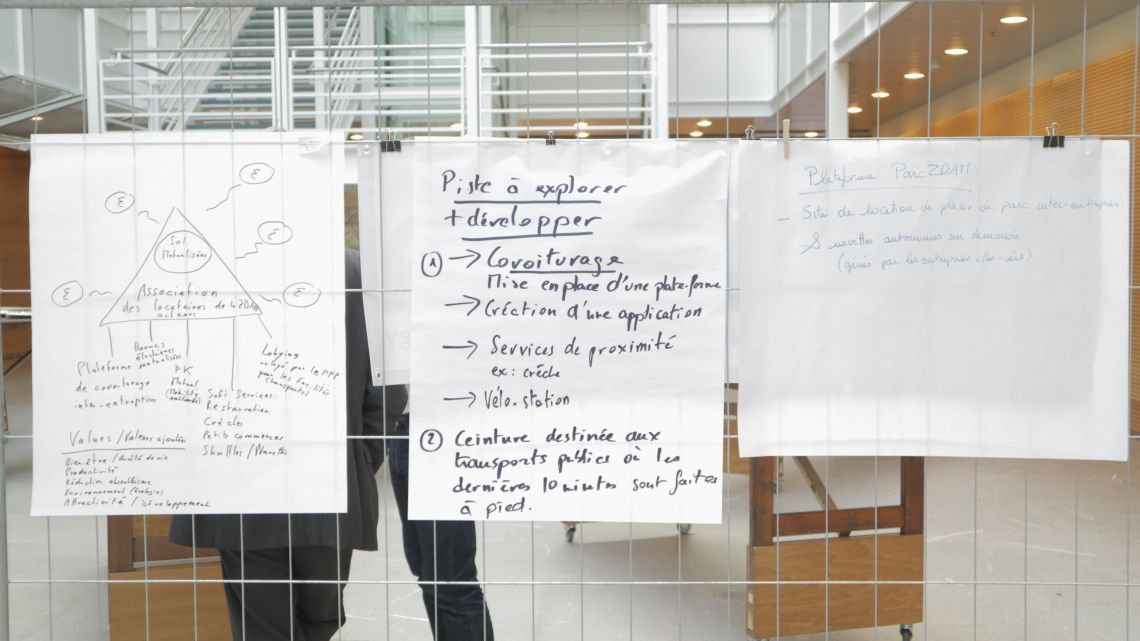 Sol.
Mutualisées
Association
des locataires de la ZDAM
acteurs
Plateforme
de covoiturage
inter-entreprises
Bornes
électriques
mutualisées
PK
Mutual
(Mobilité
améliorée)
Soft Services:
Restauration
Crèches
Petits commerces
Shuttles / Navettes
Lobbying
relayé par le PPP
pour les
(Transports)
Values / Valeurs ajoutées
Bien être / Qualité de vie
Productivité
Réduction absentéisme
Environnement (écologie)
Attractivité / Développement
Piste à explorer
+ développer
① → Covoiturage
Mise en place d'une plate-forme
→ Création d'une application
→ Services de proximité
ex: crèche
→ Vélo.station
② Ceinture destinée aux
transports publics où les
dernières 10 minutes sont faites
à pied.
Plateforme Parc ZDAM
— Site de location de places de parc inter-entreprises
navettes autonomes sur demande
(gérées par les entreprises elles-mêmes)